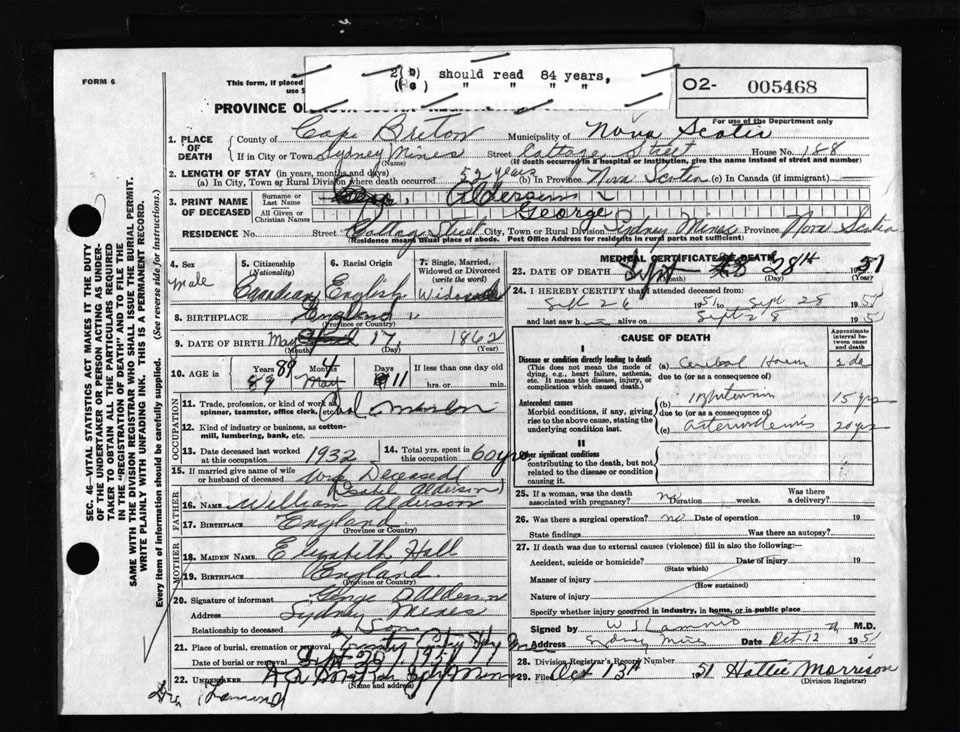 FORM 6
This form, if placed
use S
2(b) should read 84 years,
(c) " " " "
02- 005468
For use of the Department only
PROVINCE O
1. PLACE OF DEATH
County of Cape Breton (Name) Municipality of Nova Scotia
If in City or Town Sydney Mines Street Cottage Street House No. 188
(Name) (If death occurred in a hospital or institution, give the name instead of street and number)
2. LENGTH OF STAY (in years, months and days)
(a) In City, Town or Rural Division where death occurred 52 years (b) In Province Nova Scotia (c) In Canada (if immigrant)
3. PRINT NAME OF DECEASED
Surname or Last Name Alderson
All Given or Christian Names George
RESIDENCE No. Street Cottage Street City, Town or Rural Division Sydney Mines Province Nova Scotia
(Residence means usual place of abode. Post Office Address for residents in rural parts not sufficient)
4. Sex Male
5. Citizenship (Nationality) Canadian
6. Racial Origin English
7. Single, Married, Widowed or Divorced (write the word) Widowed
8. BIRTHPLACE England "
(Province or Country)
9. DATE OF BIRTH May 17, 1862
(Month) (Day) (Year)
10. AGE in Years 89 Months 4 Days 11 If less than one day old
89 May hrs. or min.
OCCUPATION
11. Trade, profession, or kind of work as spinner, teamster, office clerk, etc.
12. Kind of industry or business, as cotton-mill, lumbering, bank, etc.
13. Date deceased last worked at this occupation 1932
14. Total yrs. spent in this occupation 60 yrs
15. If married give name of wife or husband of deceased Wid Deceased
(Isabel Alderson)
FATHER
16. NAME William Alderson
17. BIRTHPLACE England
(Province or Country)
MOTHER
18. MAIDEN NAME Elizabeth Hall
19. BIRTHPLACE England
(Province or Country)
20. Signature of informant George Alderson
Address Sydney Mines
Relationship to deceased Son
21. Place of burial, cremation or removal Trinity
Date of burial or removal Sept 30, 1951
22. UNDERTAKER
(Name and address)
MEDICAL CERTIFICATE OF DEATH
23. DATE OF DEATH Sept 28th 1951
(Month) (Day) (Year)
24. I HEREBY CERTIFY that I attended deceased from:
Sept 26 1951 to Sept 28 1951
and last saw h alive on Sept 28 1951
CAUSE OF DEATH
Approximate interval between onset and death
I
Disease or condition directly leading to death
(This does not mean the mode of dying, e.g., heart failure, asthenia, etc. It means the disease, injury, or complication which caused death.
(a) Cerebral Haem 2 da
due to (or as a consequence of)
Antecedent causes
Morbid conditions, if any, giving rise to the above cause, stating the underlying condition last.
(b) Hypertension 15 yrs
due to (or as a consequence of)
(c) Arteriosclerosis 20 yrs
II
Other significant conditions
contributing to the death, but not related to the disease or condition causing it.
25. If a woman, was the death associated with pregnancy? no Duration weeks. Was there a delivery?
26. Was there a surgical operation? no Date of operation 19
State findings Was there an autopsy?
27. If death was due to external causes (violence) fill in also the following:—
Accident, suicide or homicide? Date of injury 19
(State which)
Manner of injury
(How sustained)
Nature of injury
Specify whether injury occurred in industry, in home, or in public place
Signed by M.D.
Address Sydney Mines Date Oct 12 1951
28. Division Registrar's Record Number
29. Filed Oct 13th 1951 Hattie Morrison
(Division Registrar)
SEC. 46—VITAL STATISTICS ACT MAKES IT THE DUTY
OF THE UNDERTAKER OR PERSON ACTING AS UNDER-
TAKER TO OBTAIN ALL THE PARTICULARS REQUIRED
IN THE "REGISTRATION OF DEATH" AND TO FILE THE
SAME WITH THE DIVISION REGISTRAR WHO SHALL ISSUE THE BURIAL PERMIT.
WRITE PLAINLY WITH UNFADING INK. THIS IS A PERMANENT RECORD.
Every item of information should be carefully supplied. (See reverse side for instructions.)